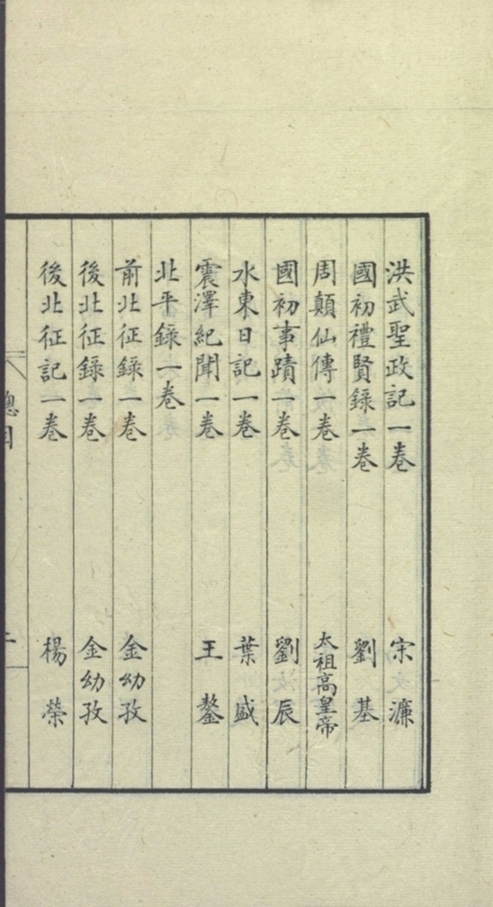 洪武聖政記一卷 宋濂
國初禮賢錄一卷 劉基
周顛仙傳一卷 太祖高皇帝
國初事蹟一卷 劉辰
水東日記一卷 葉盛
震澤紀聞一卷 王鏊
北平錄一卷
前北征錄一卷 金幼孜
後北征錄一卷 金幼孜
後北征記一卷 楊榮